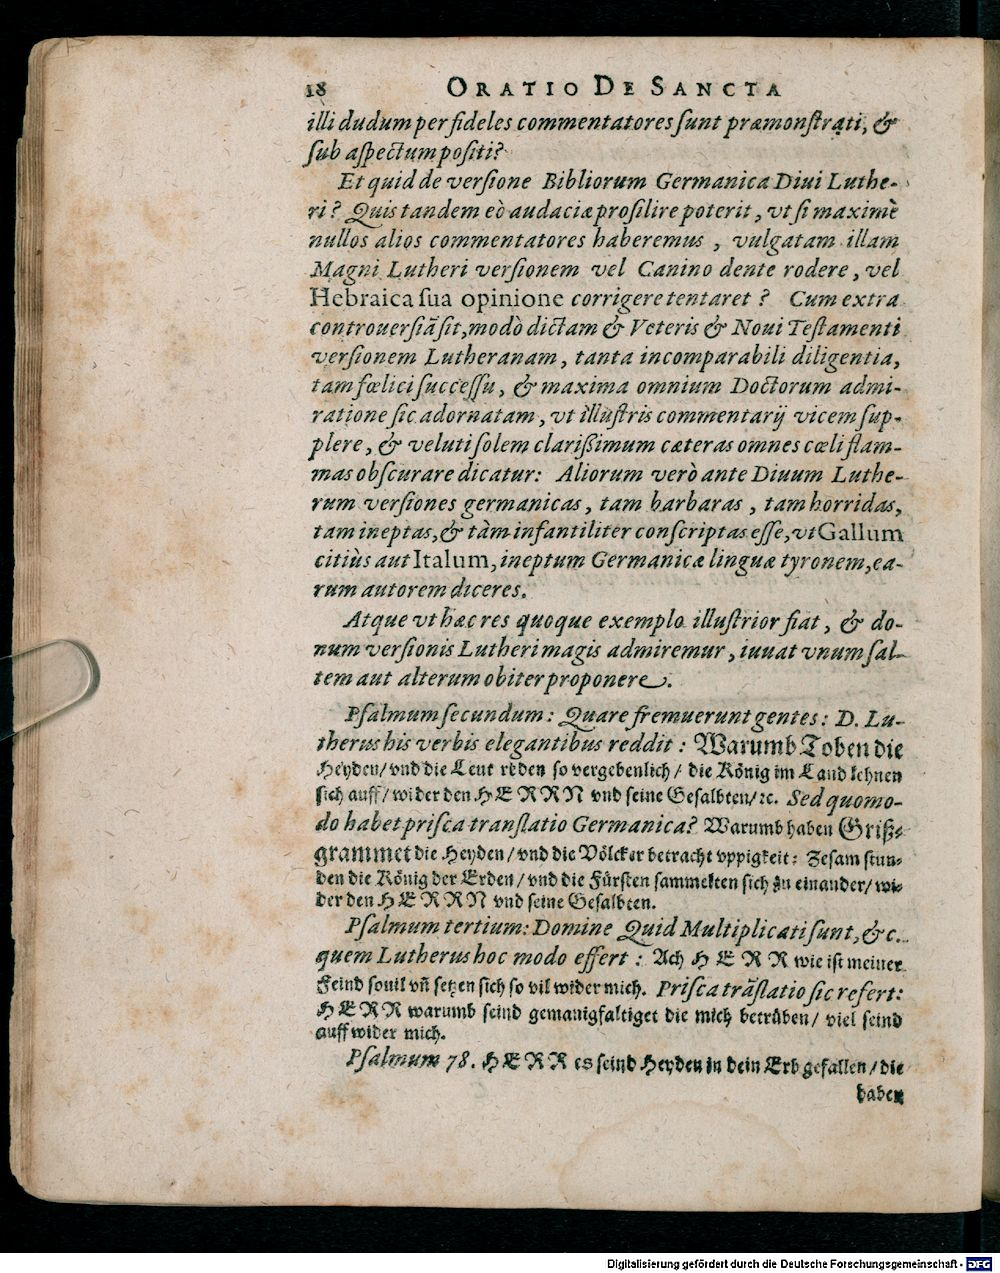 18 ORATIO DE SANCTA
illi dudum per fideles commentatores sunt præmonstrati, &
sub aspectum positi?
Et quid de versione Bibliorum Germanica Diui Luthe-
ri? Quis tandem eò audaciæ prosilire poterit, vt si maximè
nullos alios commentatores haberemus, vulgatam illam
Magni Lutheri versionem vel Canino dente rodere, vel
Hebraica sua opinione corrigere tentaret? Cum extra
controuersiā sit, modò dictam & Veteris & Noui Testamenti
versionem Lutheranam, tanta incomparabili diligentia,
tam fœlici successu, & maxima omnium Doctorum admi-
ratione sic adornatam, vt illustris commentarij vicem sup-
plere, & veluti solem clarißimum cæteras omnes cœli flam-
mas obscurare dicatur: Aliorum verò ante Diuum Luthe-
rum versiones germanicas, tam barbaras, tam horridas,
tam ineptas, & tàm infantiliter conscriptas esse, vt Gallum
citiùs aut Italum, ineptum Germanicæ linguæ tyronem, ea-
rum autorem diceres.
Atque vt hæc res quoque exemplo illustrior fiat, & do-
num versionis Lutheri magis admiremur, iuuat vnum sal-
tem aut alterum obiter proponere.
Psalmum secundum: Quare fremuerunt gentes: D. Lu-
therus his verbis elegantibus reddit: Warumb Toben die
Heyden/ vnd die Leut reden so vergebenlich/ die König im Land lehnen
sich auff/ wider den HERRN vnd seine Gesalbten/ ꝛc. Sed quomo-
do habet prisca translatio Germanica? Warumb haben Griß-
grammet die Heyden/ vnd die Völcker betracht vppigkeit: Zesam stun-
den die König der Erden/ vnd die Fürsten sammelten sich zu einander/ wi-
der den HERRN vnd seine Gesalbten.
Psalmum tertium: Domine Quid Multiplicati sunt, &c.
quem Lutherus hoc modo effert: Ach HERR wie ist meiner
Feind souil vñ setzen sich so vil wider mich. Prisca trāslatio sic refert:
HERR warumb seind gemanigfaltiget die mich betrüben/ viel seind
auff wider mich.
Psalmum 78. HERR es seind Heyden in dein Erb gefallen/ die
haben
Digitalisierung gefördert durch die Deutsche Forschungsgemeinschaft - DFG